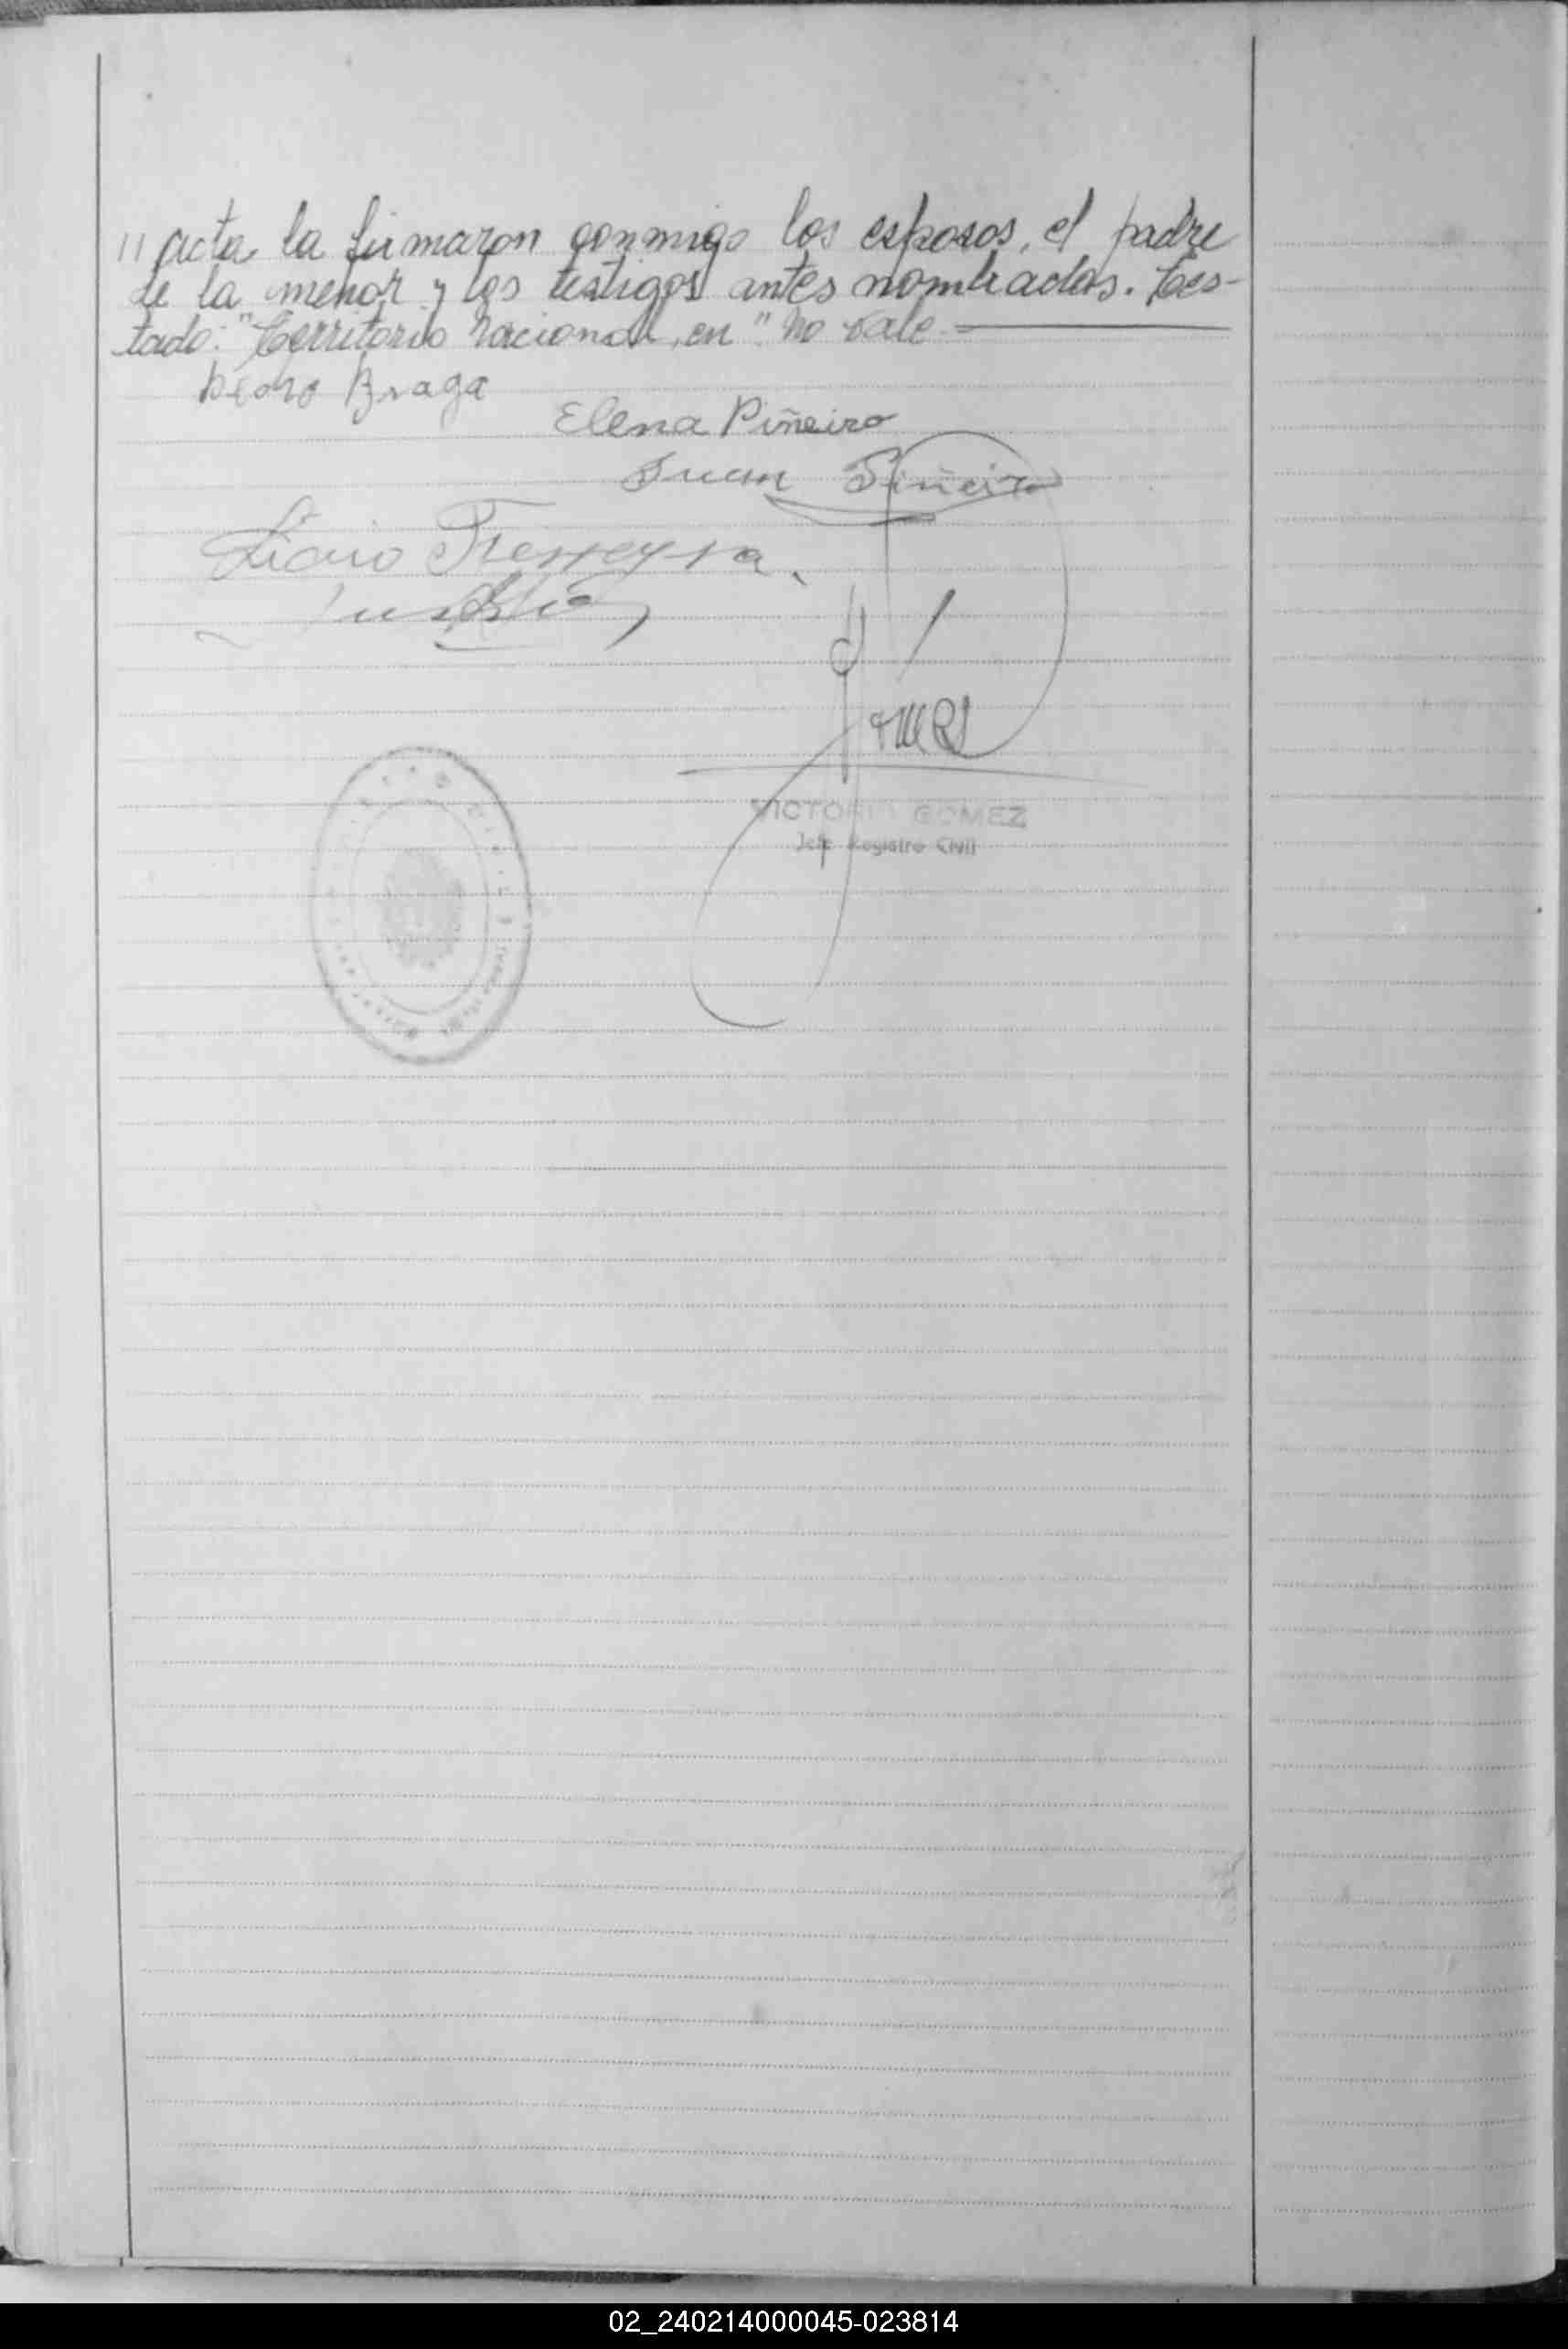 // acta, la firmaron conmigo los esposos, el padre
de la menor y los testigos antes nombrados. Tes-
tado: "Territorio Nacional, en" No vale =
Pedro Braga
Elena Piñeiro
Juan Piñeiro
Ferreyra
VICTOR GOMEZ
Jefe Registro Civil
02_240214000045-023814